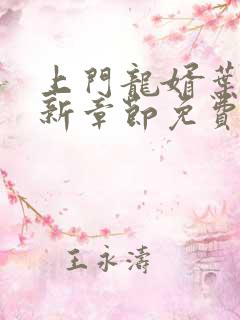 上門龍婿葉
新章節免費
王永濤